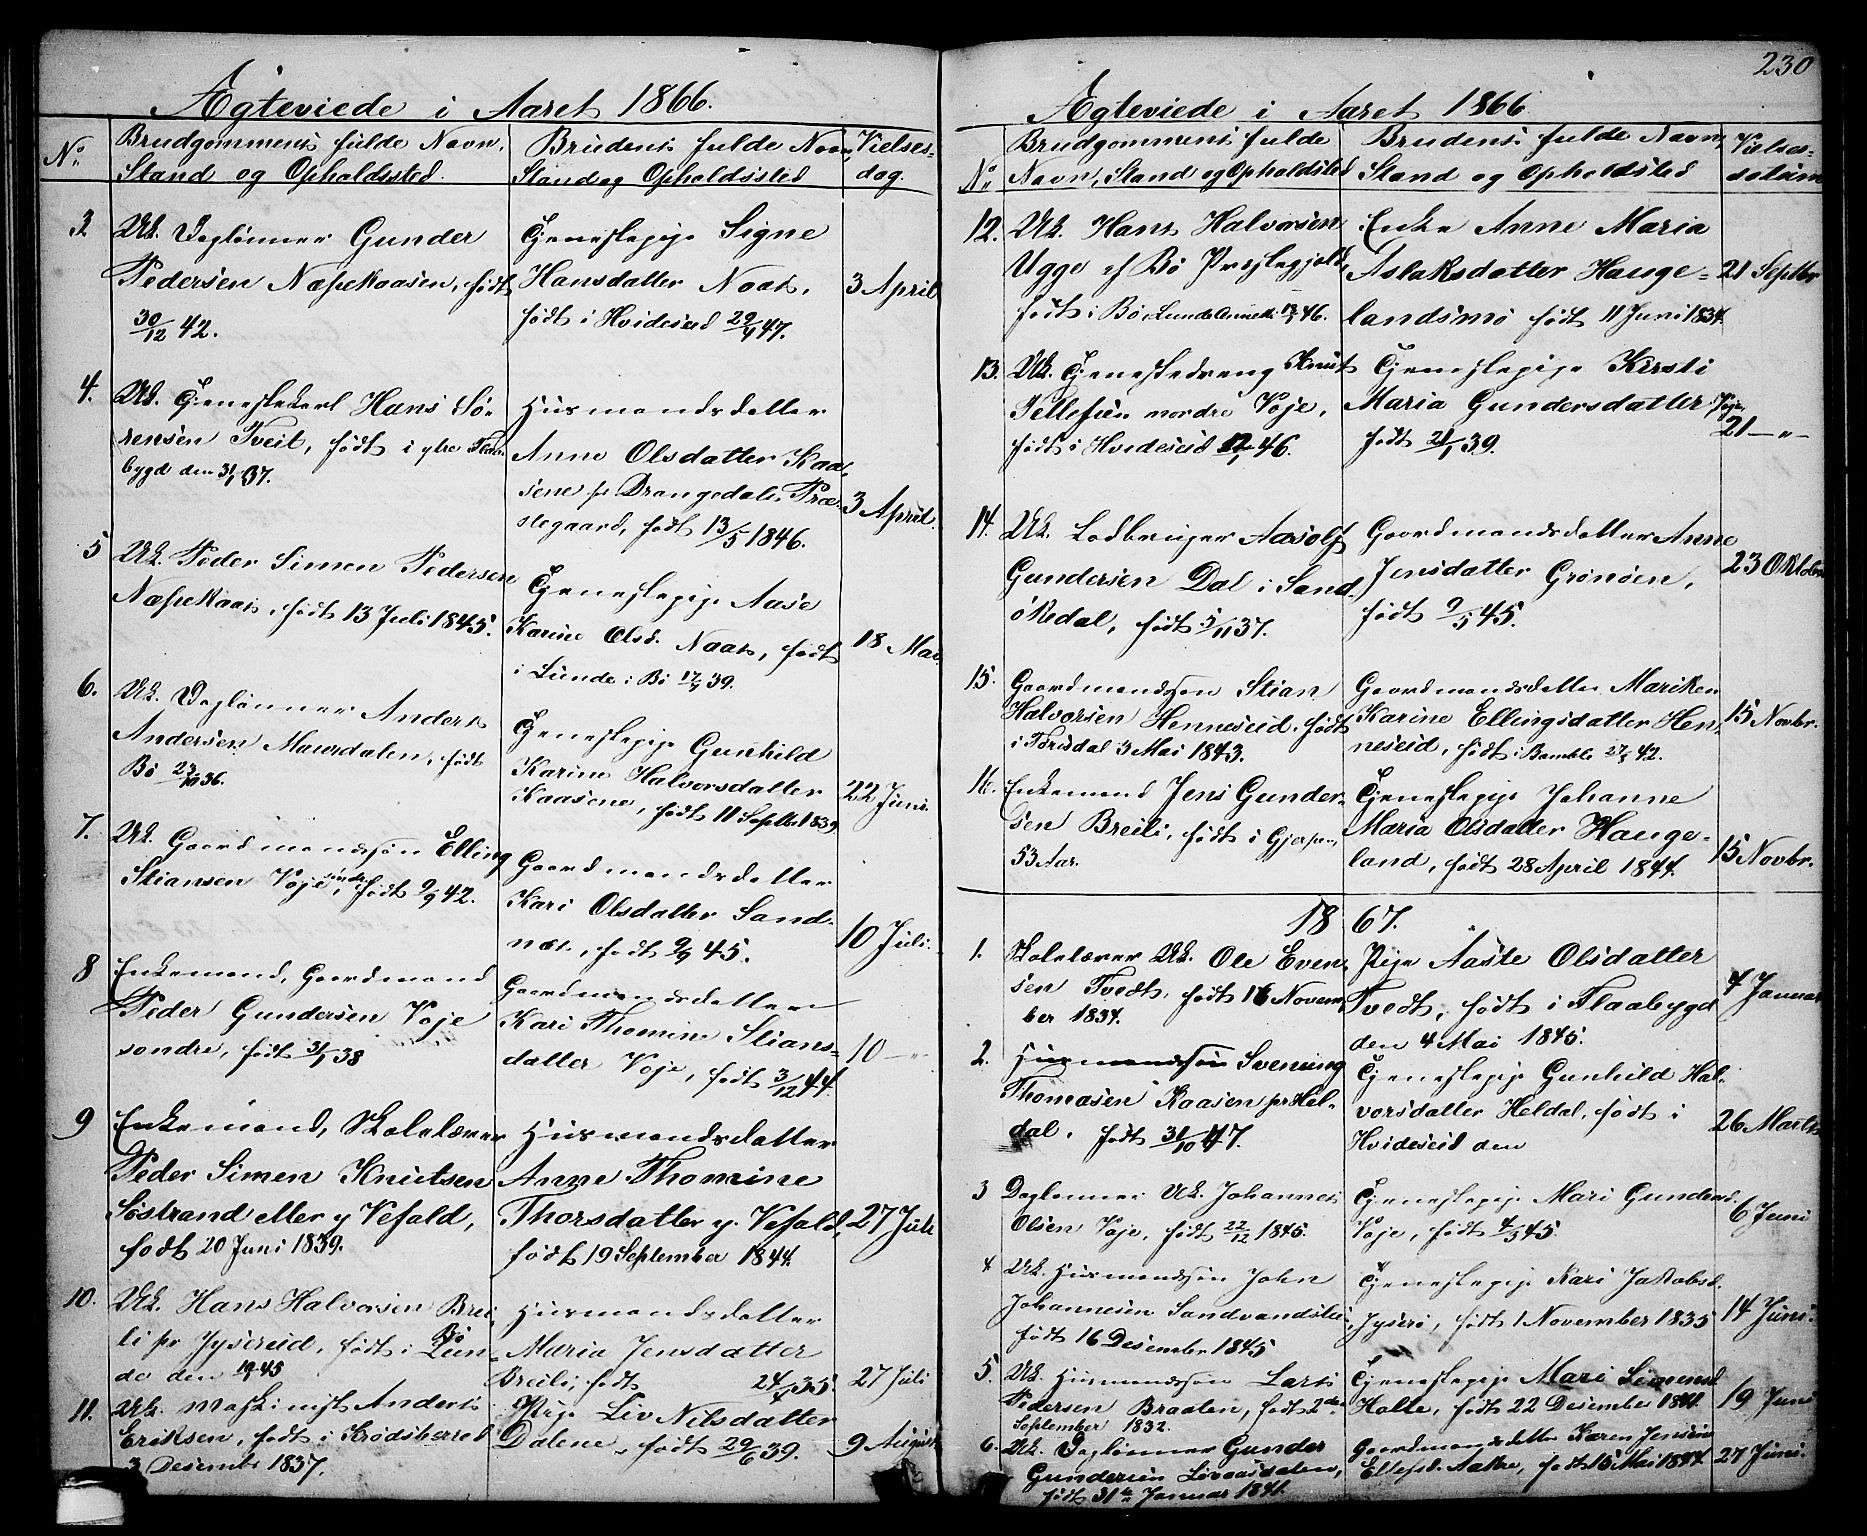 Ægteviede i Aaret 1866.
No.
Brudgommens fulde Navn,
Stand og Opholdssted.
Brudens fulde Navn,
Stand og Opholdssted
Vielses-
dag.
3
Uk. Daglønner Gunder
Pedersen Næsekaasen, født
30/12 42.
Tjenestepige Signe
Hansdatter Naas,
født i Hvideseid 47.
3 April
4.
Uk. Tjenestekarl Hans Sø-
rensen Tveit, født i ytre
bygd den 37.
Husmandsdatter
Anne Olsdatter Kaa-
sene pr Drangedals Præ-
stegaard, født 13/5 1846.
3 April.
5
Uk. Peder Simen Pedersen
Næsekaas, født 13 Juli 1845.
Tjenestepige Aase
Karine Olsd. Naas, født
i Lunde i Bø 39.
18 Mai
6.
Uk. Daglønner Anders
Andersen Mausdalen, født
Bø 36.
Tjenestepige Gunhild
Karine Halvorsdatter
Kaasene, født 11 Septbr 1839
22 Juni
7.
Uk. Gaardmandssøn Elling
Stiansen Voje søndre, født 9/9 42.
Gaardmandsdatter
Kari Olsdatter Sand-
næs, født 45.
10 Juli.
8
Enkemand, Gaardmand
Peder Gundersen Voje
søndre, født 38
Gaardmandsdatter
Kari Thomine Stians-
datter Voje, født 3/12 44.
10 — "
9
Enkemand, Skolelærer
Peder Simen Knutsen
Søstrand eller y Vefald,
født 20 Juni 1839.
Husmandsdatter
Anne Thomine
Thorsdatter y. Vefald,
født 19 September 1844.
27 Juli
10.
Uk. Hans Halvorsen Brei-
li pr Jysereid, født i Bø Lun-
de den 45
Husmandsdatter
Maria Jensdatter
Breili, født 35.
27 Juli
11.
Uk. Maskinist Anders
Eriksen, født i Krødsherred
3 Desembr 1837.
Pige Liv Nilsdatter
Dalene, født 29/6 39.
9 August
230
Ægteviede i Aaret 1866.
No.
Brudgommens fulde
Navn, Stand og Opholdsted
Brudens fulde Navn,
Stand og Opholdsted
Vielses-
datum
12.
Uk. Hans Halvorsen
Ugge af Bø Præstegjeld
født i Bø, Lunde Annex 46.
Enke Anne Maria
Aslaksdatter Hauge-
landsmo født 11 Juni 1834.
21 Septbr
13.
Uk. Tjenestedreng Knut
Tellefsen nordre Voje,
født i Hvideseid 46.
Tjenestepige Kirsti
Maria Gundersdatter Voje,
født 39.
21 — " —
14.
Uk. Lodbruger Aasolf
Gundersen Dal i Sand-
økedal, født 5/11 37.
Gaardmandsdatter Anne
Jensdatter Grønåen,
født 9/5 45.
23 Oktober
15.
Gaardmandssøn Stian
Halvorsen Henneseid, født
i Tørisdal 3 Mai 1843.
Gaardmandsdatter Mariken
Karine Ellingsdatter Hen-
neseid, født i Bamble 42.
15 Novbr.
16.
Enkemand Jens Gunder-
sen Breili, født i Gjerpen,
53 Aar.
Tjenestepige Johanne
Maria Olsdatter Hauge-
land, født 28 April 1844.
15 Novbr.
1867.
1.
Skolelærer Uk. Ole Even-
sen Tvedt, født 16 Novem-
ber 1834.
Pige Aaste Olsdatter
Tvedt, født i Flaabygd
den 4 Mai 1845.
4 Januar
2.
Husmandssøn Svenung
Thomasen Kaasen pr Hel-
dal, født 31/10 47.
Tjenestepige Gunhild Hal-
vorsdatter Heldal, født i
Hvideseid den
26 Marts
3
Dagløner Uk. Johannes
Olsen Voje, født 22/12 1845.
Tjenestepige Mari Gundersd.
Voje, født 45.
6 Juni
4
Uk. Husmandssøn John
Johannesen Sandvandslie
født 16 Desember 1845
Tjenestepige Kari Jakobsd.
Jyserø, født 1 November 1835
14 Juni.
5.
Uk. Husmandssøn Lars
Pedersen Braaten, født 2den
September 1832.
Tjenestepige Mari Simensd
Holte, født 22 Desember 1841.
19 Juni
6.
Uk. Dagløner Gunder
Gundersen Livaasdalen,
født 31te Januar 1841.
Gaardmandsdatter Karen Jensine
Ellefsd. Aakre, født 15 Mai 1844.
27 Juni.